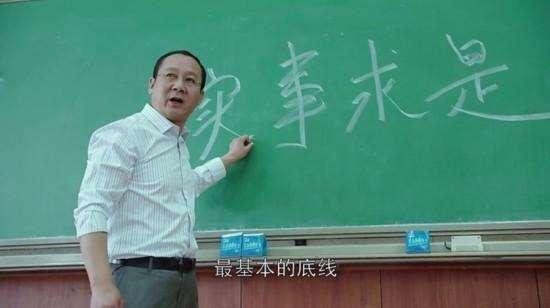 实事求是
最基本的底线